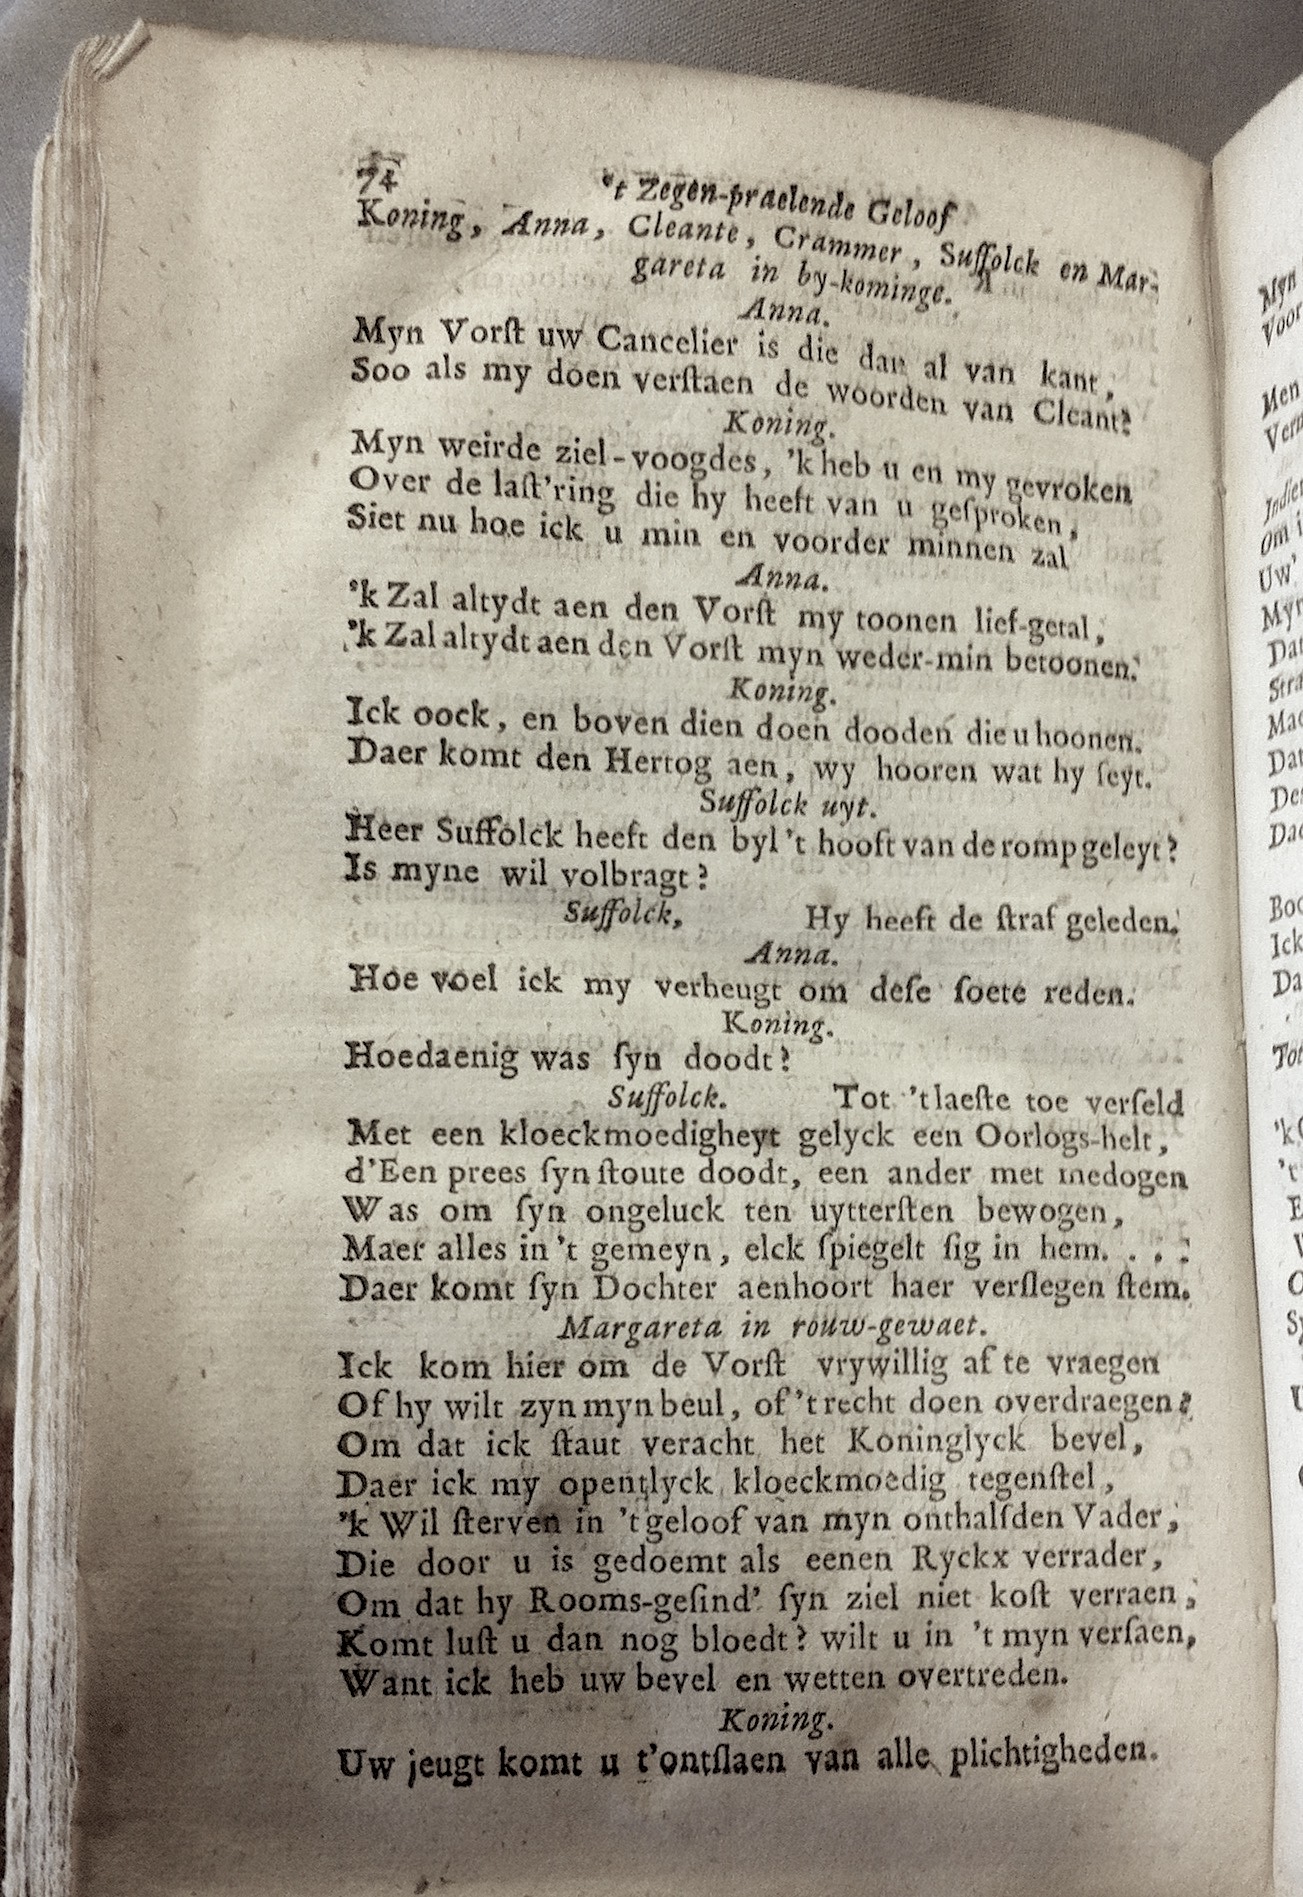 74
't Zegen-praelende Geloof
Koning, Anna, Cleante, Crammer, Suffolck en Mar-
gareta in by-kominge.
Anna.
Myn Vorſt uw Cancelier is die dan al van kant,
Soo als my doen verſtaen de woorden van Cleant?
Koning.
Myn weirde ziel-voogdes, 'k heb u en my gevroken
Over de laſt'ring die hy heeft van u geſproken,
Siet nu hoe ick u min en voorder minnen zal
Anna.
'k Zal altydt aen den Vorſt my toonen lief-getal,
'k Zal altydt aen den Vorſt myn weder-min betoonen.
Koning.
Ick oock, en boven dien doen dooden die u hoonen.
Daer komt den Hertog aen, wy hooren wat hy ſeyt.
Suffolck uyt.
Heer Suffolck heeft den byl 't hooft van de romp geleyt?
Is myne wil volbragt?
Suffolck, Hy heeft de ſtraf geleden.
Anna.
Hoe voel ick my verheugt om deſe ſoete reden.
Koning.
Hoedaenig was ſyn doodt?
Suffolck. Tot 't laeſte toe verſeld
Met een kloeckmoedigheyt gelyck een Oorlogs-helt,
d'Een prees ſyn ſtoute doodt, een ander met medogen
Was om ſyn ongeluck ten uytterſten bewogen,
Maer alles in 't gemeyn, elck ſpiegelt ſig in hem. . . :
Daer komt ſyn Dochter aenhoort haer verſlegen ſtem.
Margareta in rouw-gewaet.
Ick kom hier om de Vorſt vrywillig af te vraegen
Of hy wilt zyn myn beul, of 't recht doen overdraegen?
Om dat ick ſtaut veracht het Koninglyck bevel,
Daer ick my opentlyck kloeckmoedig tegenſtel,
'k Wil ſterven in 't geloof van myn onthalſden Vader,
Die door u is gedoemt als eenen Ryckx verrader,
Om dat hy Rooms-geſind' ſyn ziel niet koſt verraen,
Komt luſt u dan nog bloedt? wilt u in 't myn verſaen,
Want ick heb uw bevel en wetten overtreden.
Koning.
Uw jeugt komt u t'ontſlaen van alle plichtigheden.
Myn
Voor
Men
Om i
Uw'
Dat
Stra
Dat
Ick
Da
Tot